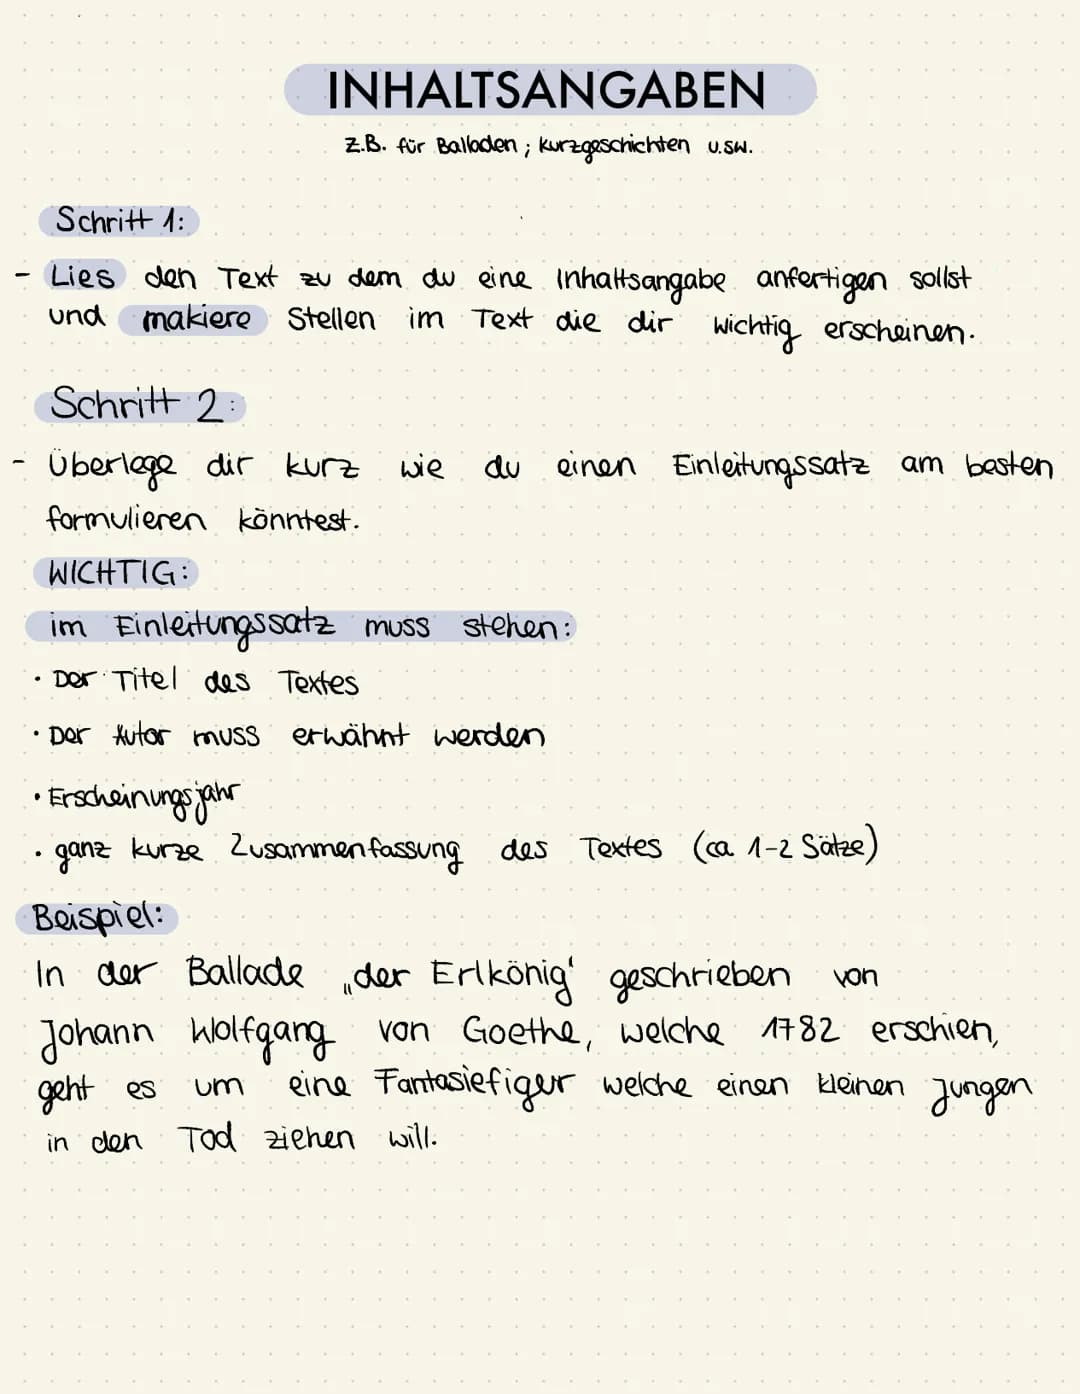 INHALTSANGABEN
z.B. für Balladen ; Kurzgeschichten u.sw.
Schritt 1:
- Lies den Text zu dem du eine Inhaltsangabe anfertigen sollst
und makiere Stellen im Text die dir wichtig erscheinen.
Schritt 2:
- Überlege dir kurz wie du einen Einleitungssatz am besten
formulieren könntest.
WICHTIG:
im Einleitungssatz muss stehen:
• Der Titel des Textes
• Der Autor muss erwähnt werden
• Erscheinungsjahr
• ganz kurze Zusammenfassung des Textes (ca. 1-2 Sätze)
Beispiel:
In der Ballade „der Erlkönig' geschrieben von
Johann Wolfgang von Goethe, welche 1782 erschien,
geht es um eine Fantasiefigur welche einen kleinen Jungen
in den Tod ziehen will.